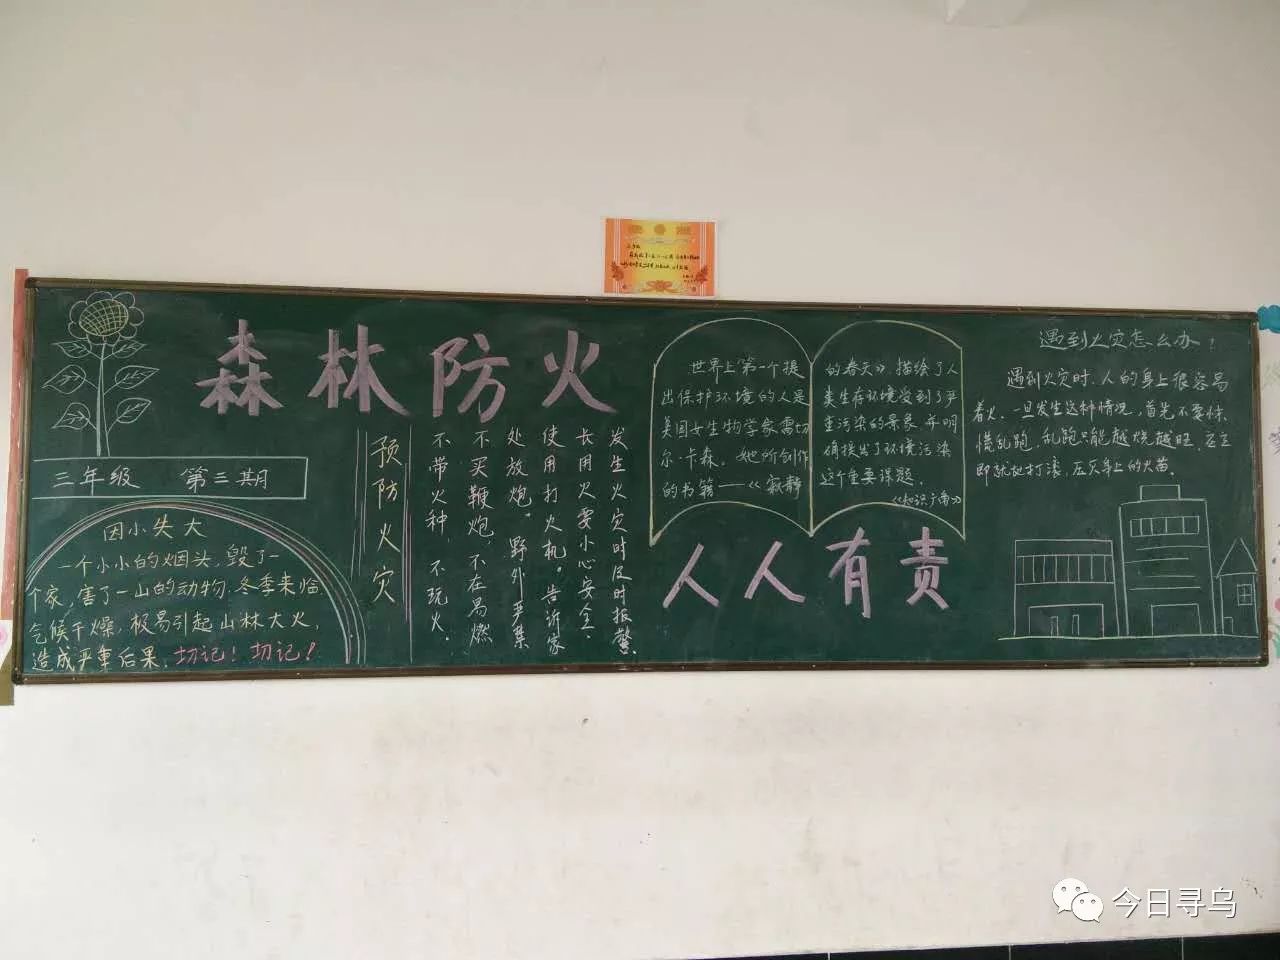 森林防火
三年级 第三期
因小失大
一个小小的烟头，毁了一
个家，害了一山的动物.冬季来临
气候干燥，极易引起山林大火，
造成严重后果，切记！切记！
预防火灾
不带火种，不玩火.
不买鞭炮，不在易燃
处放炮。野外严禁
使用打火机。告诉家
长用火要小心安全.
发生火灾时及时报警.
世界上第一个提
出保护环境的人是
美国女生物学家雷切
尔·卡森。她所创作
的书籍——《寂静
的春天》，描绘了人
类生存环境受到了严
重污染的景象，并明
确提出了环境污染
这个重要课题.
《知识广角》
人人有责
遇到火灾怎么办？
遇到火灾时，人的身上很容易
着火，一旦发生这种情况，首先不要惊
慌乱跑，乱跑只能越烧越旺，应立
即就地打滚，压灭身上的火苗。
今日寻乌